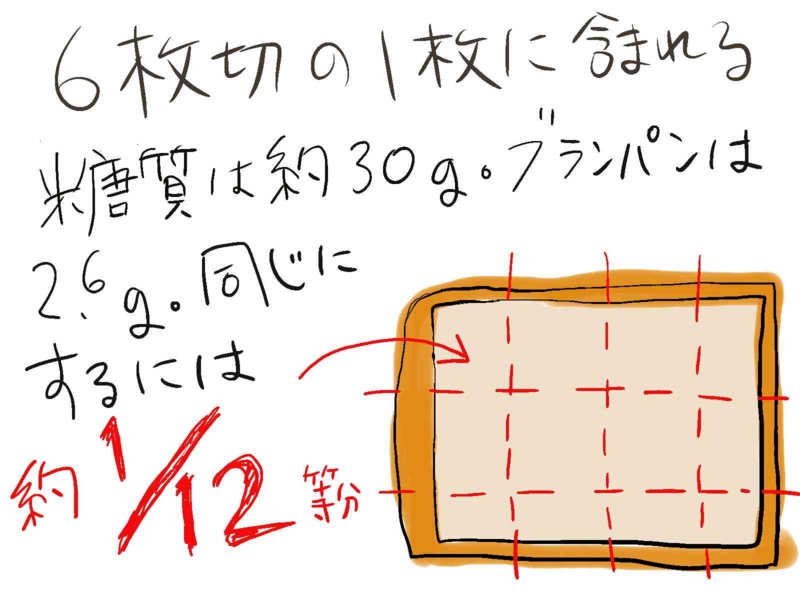 6枚切の1枚に含まれる
糖質は約30g。ブランパンは
2.6g。同じに
するには
約1/12等分